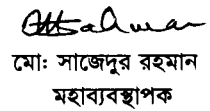 মোঃ সাজেদুর রহমান
মহাব্যবস্থাপক